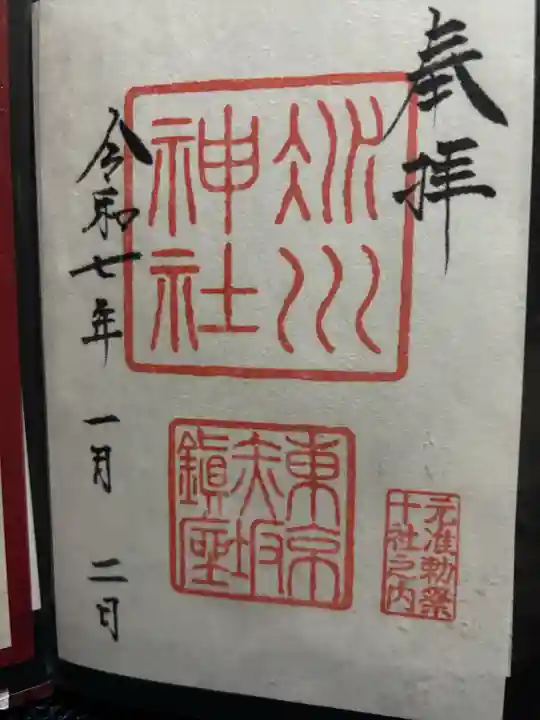 奉拝
氷川
神社
東京
赤坂
鎮座
元准勅祭
十社之内
令和七年 一月 二日